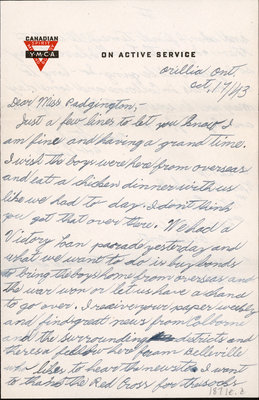 CANADIAN
YMCA
ON ACTIVE SERVICE
Orillia Ont,
Oct, 17/43
Dear Miss Padgington,-
Just a few lines to let you know I
am fine and having a grand time.
I wish the boys were here from overseas
and eat a chicken dinner with us
like we had to day. I don't think
you get that over there. We had a
Victory Loan parade yesterday and
what we want to do is buy bonds
to bring the boys home from overseas and
the war won or let us have a chance
to go over. I receive your paper weekly
and find great news from Colborne
and the surrounding districts and
theres a fellow here from Belleville
who likes to hear the news too I want
to thank the Red Cross for the socks